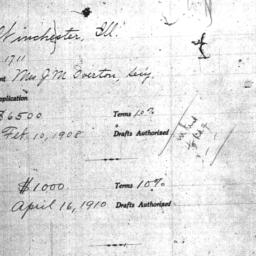 Winchester, Ill.
1711
Mrs J. M. Overton, Secy.
plication
$6500 Terms 10%
Feb. 10, 1908 Drafts Authorized
$1000 Terms 10%
April 16, 1910 Drafts Authorized